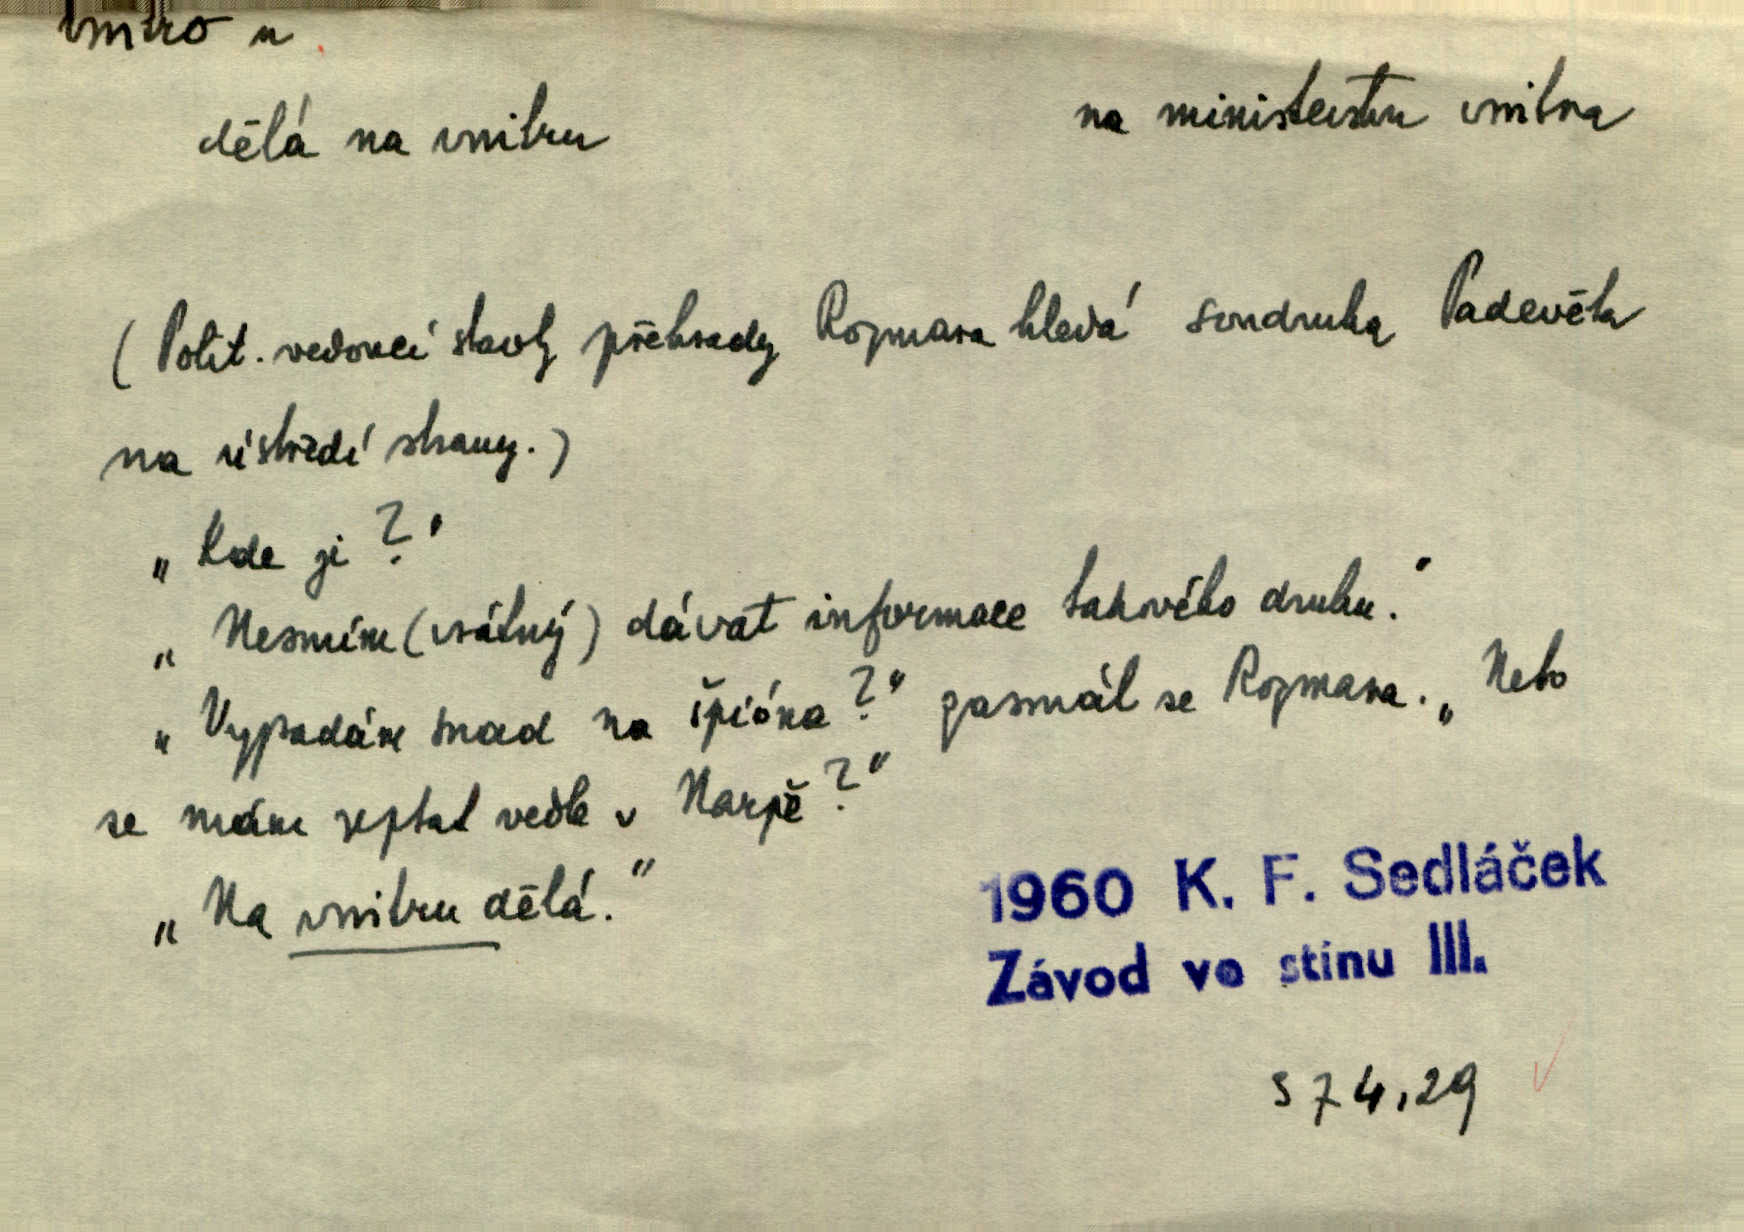 vnitro n
dělá na vnitru
na ministerstvu vnitra
(Polit. vedoucí stavby přehrady Rozmara hledá soudruha Padevěta
na ústředí strany.)
„Kde je?"
„Nesmím (vrátný) dávat informace takového druhu."
„Vypadám snad na špióna?" zasmál se Rozmara. „Nebo
se mám zeptat vedle v Karpě?"
„Na vnitru dělá."
1960 K. F. Sedláček
Závod ve stínu III.
s 74,29